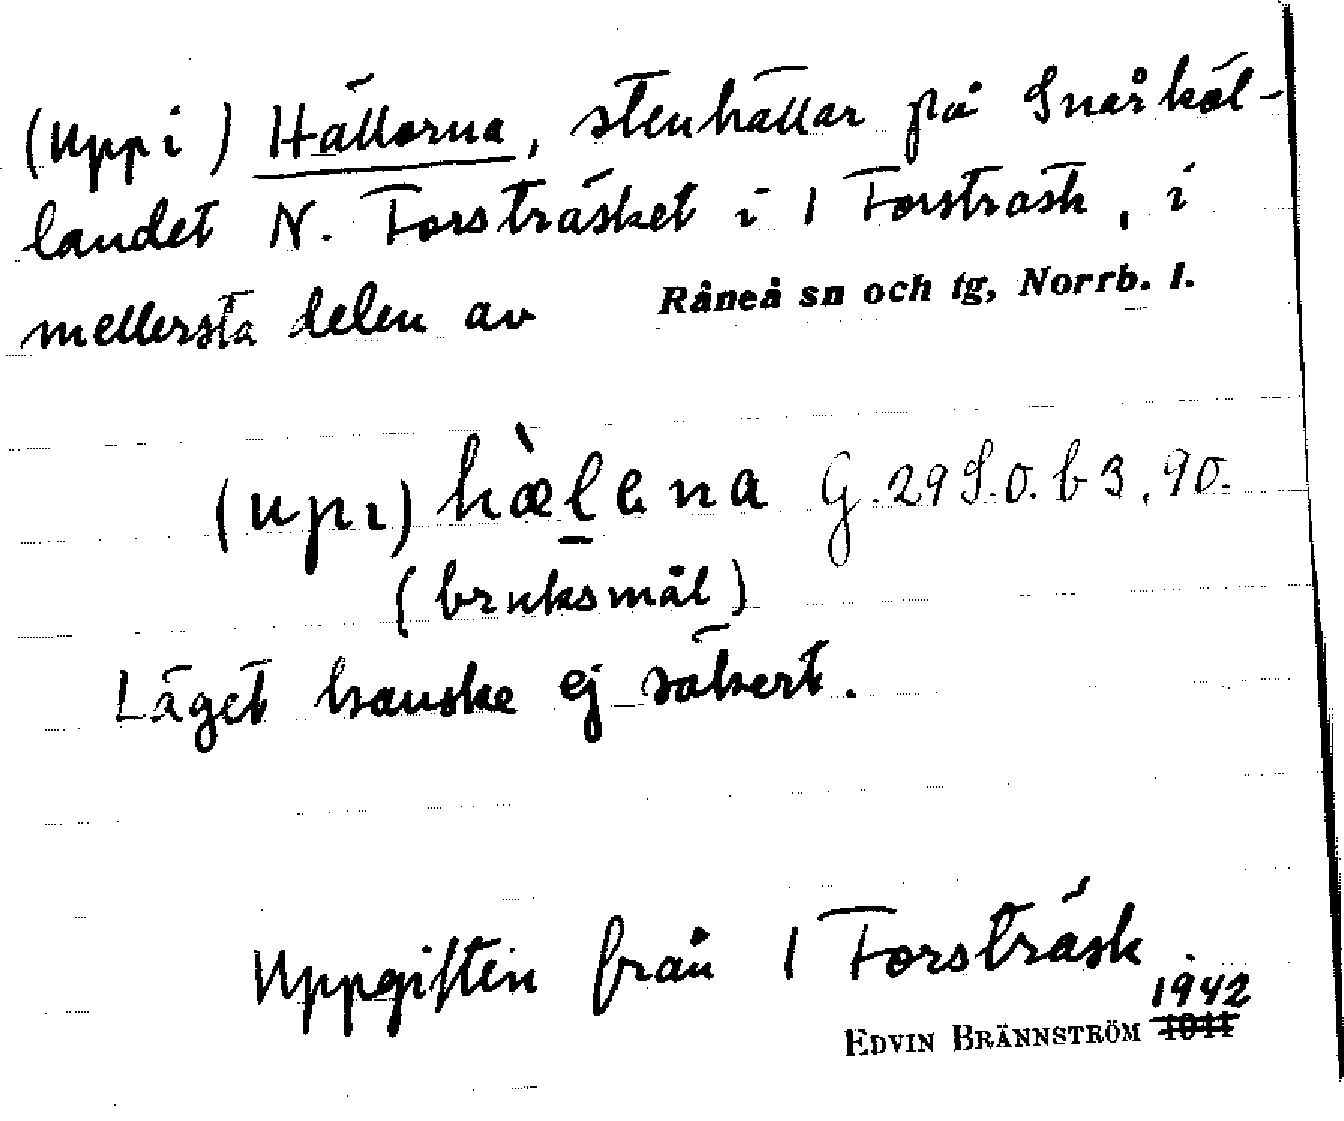 (uppi) Hällorna, stenhällar på Snårkäl-
landet N. Forsträsket i 1 Forsträsk, i
mellersta delen av Råneå sn och tg, Norrb. l.
(upı) hælena G.29 S.O. b 3, 90.
(bruksmål)
Läget kanske ej säkert.
Uppgiften från 1 Forsträsk
1942
EDVIN BRÄNNSTRÖM 1941